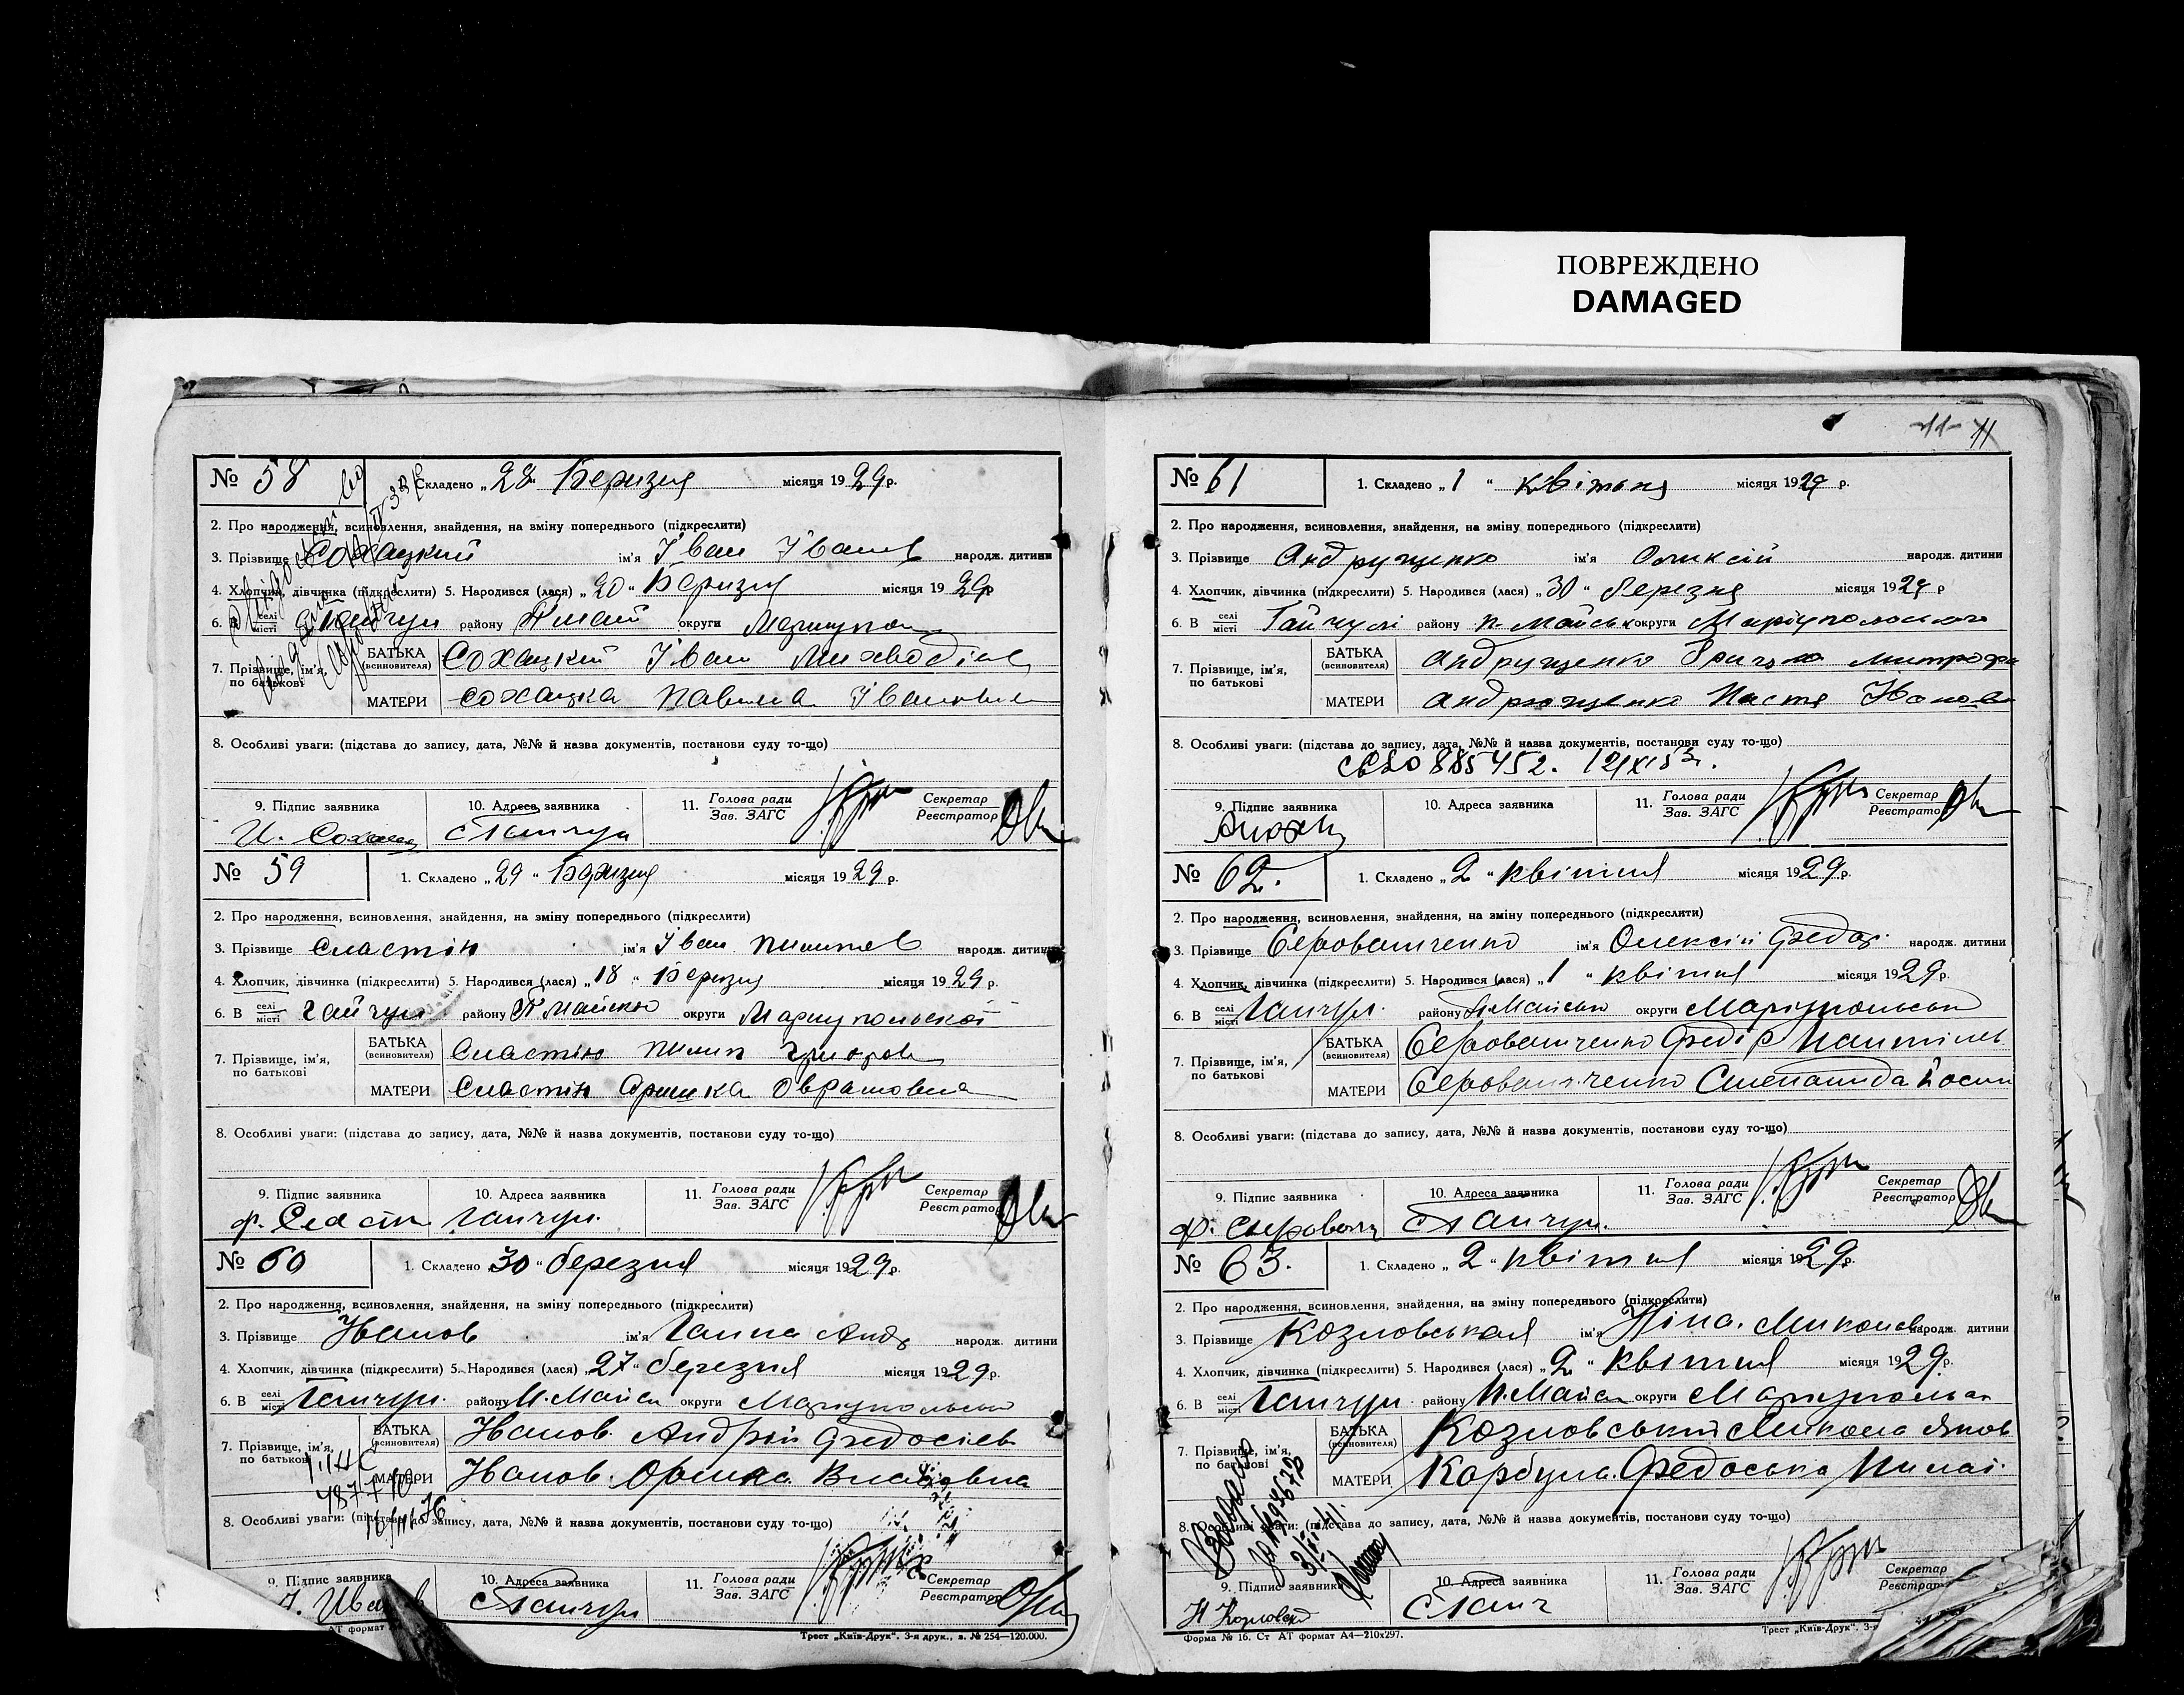 ПОВРЕЖДЕНО
DAMAGED
11
№ 58
1. Складено „28“ Березня місяця 1929 р.
2. Про народження, всиновлення, знайдення, на зміну попереднього (підкреслити)
3. Прізвище Сохацкий ім'я Іван Іванов народж. дитини
4. Хлопчик, дівчинка (підкреслити) 5. Народився (лася) „20“ Березня місяця 1929 р
6. В селі місті Гайчул району П май округи Мариупол
7. Прізвище, ім'я, по батькові
БАТЬКА (всиновителя) Сохацкий Іван
МАТЕРИ Сохацка Павлина Івановна
8. Особливі уваги: (підстава до запису, дата, №№ й назва документів, постанови суду то-що)
9. Підпис заявника 10. Адреса заявника 11. Голова ради Зав. ЗАГС Секретар Реєстратор
И. с Гайчул
№ 59
1. Складено „29“ Березня місяця 1929 р.
2. Про народження, всиновлення, знайдення, на зміну попереднього (підкреслити)
3. Прізвище Сластін ім'я Іван Пилипов народж. дитини
4. Хлопчик, дівчинка (підкреслити) 5. Народився (лася) „18“ Березня місяця 1929 р.
6. В селі місті Гайчул району П Майско округи Мариупольскої
7. Прізвище, ім'я, по батькові
БАТЬКА (всиновителя) Сластін Пилип
МАТЕРИ Сластін Оришка Оврамовна
8. Особливі уваги: (підстава до запису, дата, №№ й назва документів, постанови суду то-що)
9. Підпис заявника 10. Адреса заявника 11. Голова ради Зав. ЗАГС Секретар Реєстратор
ф. Сластін Гайчул.
№ 60
1. Складено „30“ березня місяця 1929 р.
2. Про народження, всиновлення, знайдення, на зміну попереднього (підкреслити)
3. Прізвище Иванов ім'я Ганна Андр народж. дитини
4. Хлопчик, дівчинка (підкреслити) 5. Народився (лася) „27“ березня місяця 1929 р.
6. В селі місті Гайчул. району П. Майськ округи Маріупольськ
7. Прізвище, ім'я, по батькові
БАТЬКА (всиновителя) Иванов. Андрій Федосієв
МАТЕРИ Иванов. Оришка
487710
8. Особливі уваги: (підстава до запису, дата, №№ й назва документів, постанови суду то-що)
9. Підпис заявника 10. Адреса заявника 11. Голова ради Зав. ЗАГС Секретар Реєстратор
с Гайчул
АТ формат
Трест „Київ-Друк“. 3-я друк., з. № 254—120.000.
№ 61
1. Складено „1“ квітня місяця 1929 р.
2. Про народження, всиновлення, знайдення, на зміну попереднього (підкреслити)
3. Прізвище Андрущенко ім'я Олексій народж. дитини
4. Хлопчик, дівчинка (підкреслити) 5. Народився (лася) „30“ березня місяця 1929 р
6. В селі місті Гайчулі району П.-Майськ округи Маріупольського
7. Прізвище, ім'я, по батькові
БАТЬКА (всиновителя) Андрущенко Грицько Митрофа
МАТЕРИ Андрющенко Настя Іванов
8. Особливі уваги: (підстава до запису, дата, №№ й назва документів, постанови суду то-що)
885452.
9. Підпис заявника 10. Адреса заявника 11. Голова ради Зав. ЗАГС Секретар Реєстратор
№ 62.
1. Складено „2“ квітня місяця 1929 р.
2. Про народження, всиновлення, знайдення, на зміну попереднього (підкреслити)
3. Прізвище Серованченко ім'я Олексій Федор. народж. дитини
4. Хлопчик, дівчинка (підкреслити) 5. Народився (лася) „1“ квітня місяця 1929 р.
6. В селі місті Гайчул. району П. Майсько округи Маріупольськ
7. Прізвище, ім'я, по батькові
БАТЬКА (всиновителя) Серованченко Федір
МАТЕРИ Серованченко Степанида Йосип
8. Особливі уваги: (підстава до запису, дата, №№ й назва документів, постанови суду то-що)
9. Підпис заявника 10. Адреса заявника 11. Голова ради Зав. ЗАГС Секретар Реєстратор
с Гайчул.
№ 63.
1. Складено „2“ квітня місяця 1929 р.
2. Про народження, всиновлення, знайдення, на зміну попереднього (підкреслити)
3. Прізвище Козловськая ім'я Ніна. Миколаєв народж. дитини
4. Хлопчик, дівчинка (підкреслити) 5. Народився (лася) „2“ квітня місяця 1929 р.
6. В селі місті Гайчул району П. Майськ округи Маріупольськ
7. Прізвище, ім'я, по батькові
БАТЬКА (всиновителя) Козловський Микола Яков
МАТЕРИ Федоська
8. Особливі уваги: (підстава до запису, дата, №№ й назва документів, постанови суду то-що)
9. Підпис заявника 10. Адреса заявника 11. Голова ради Зав. ЗАГС Секретар Реєстратор
Н Козловск с Гайч
Форма № 16. Ст АТ формат А4—210x297.
Трест „Київ-Друк“. 3-я